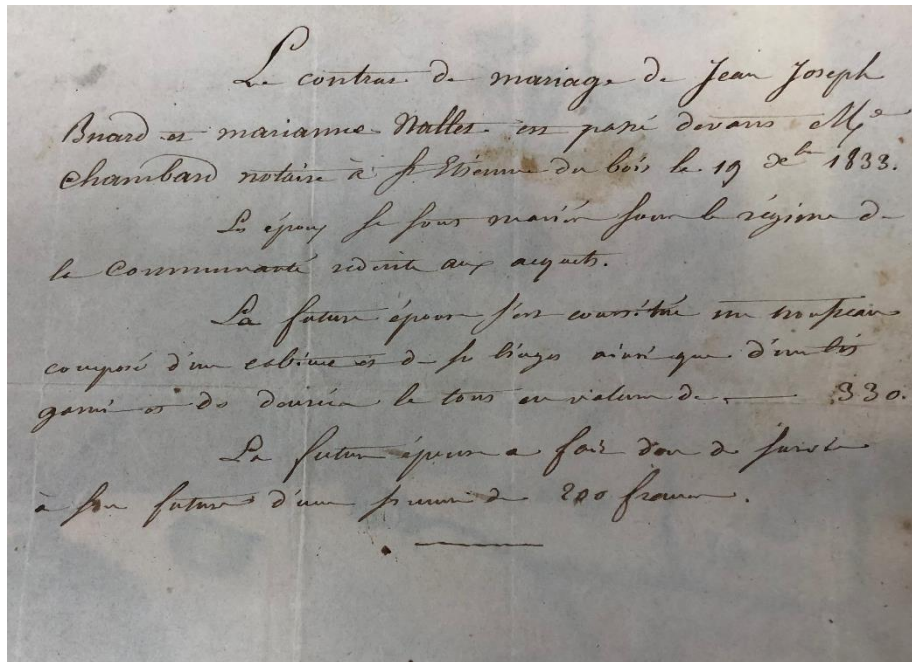 Le contrat de mariage de Jean Joseph
Buard et marianne Nallet est passé devant Me
Chambard notaire à St Etienne du bois le 19 xbre 1833.
Les époux se sont mariés sous le régime de
la Communauté réduite aux acquets.
La future épouse s'est constitué un trousseau
composé d'un et de ses linges ainsi que d'un lit
garni et de le tout en valeur de — 330.
La future épouse a fait don de survie
à son future d'une somme de 200 francs.